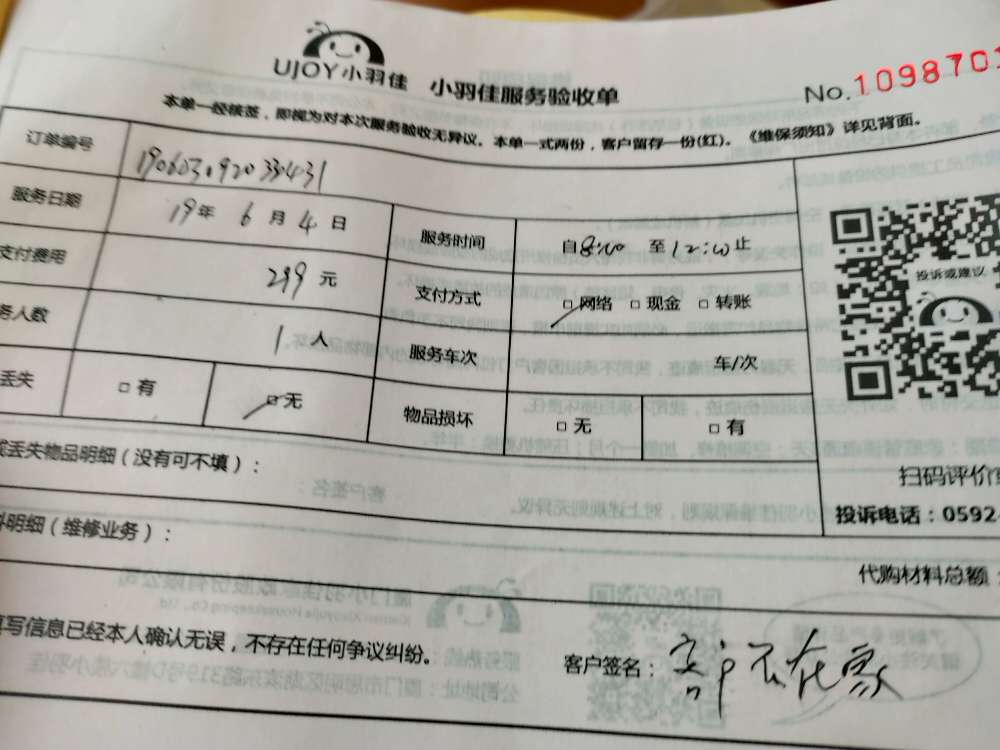 UJOY小羽佳 小羽佳服务验收单
No.1098701
本单一经核签，即视为对本次服务验收无异议。本单一式两份，客户留存一份(红)。《维保须知》详见背面。
订单编号 190603092033431
服务日期 19年 6月 4日 服务时间 自8:00 至12:00止
支付费用 299 元 支付方式 □网络 □现金 □转账
务人数 1 人 服务车次 车/次
丢失 □有 □无 物品损坏 □无 □有
投诉或建议
丢失物品明细（没有可不填）：
扫码评价
投诉电话：0592
料明细（维修业务）：
代购材料总额：
填写信息已经本人确认无误，不存在任何争议纠纷。
客户签名：客户不在家